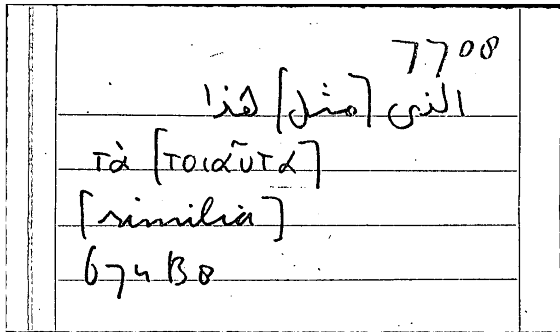 7708
التى [مثل] هذا
τὰ [τοιαῦτα]
[similia]
674 B 8